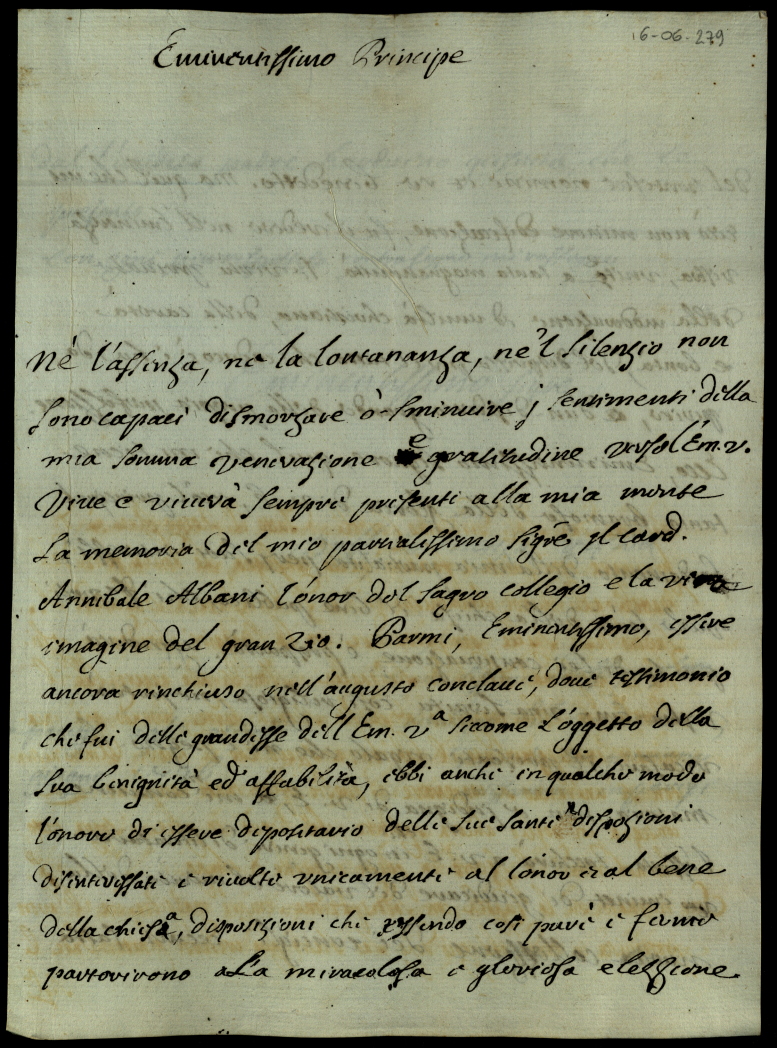 16-06.279
Eminentissimo Principe
Nè l'assenza, ne la lontananza, ne'l silenzio non
sono capaci dismorzare ò sminuire j sentimenti della
mia somma venerazione e gratitudine verso l'Em. v.
Vive e viverà sempre presente alla mia mente
La memoria del mio parzialissimo sigre jl card.
Annibale Albani l'onor del sagro collegio e la viva
imagine del gran zio. Parmi, Eminentissimo, essere
ancora rinchiuso nell'augusto conclave, dove testimonio
che fui delle grandesse dell Em. va siccome L'oggetto della
sua benignità ed affabilità, ebbi anche in qualche modo
l'onore di essere depositario delle sue sante disposizioni
disinteressate e rivolte unicamente al lonor e al bene
della chiesa, disposizioni che essendo così pure e ferme
partorirono a La miracolosa e gloriosa elezzione